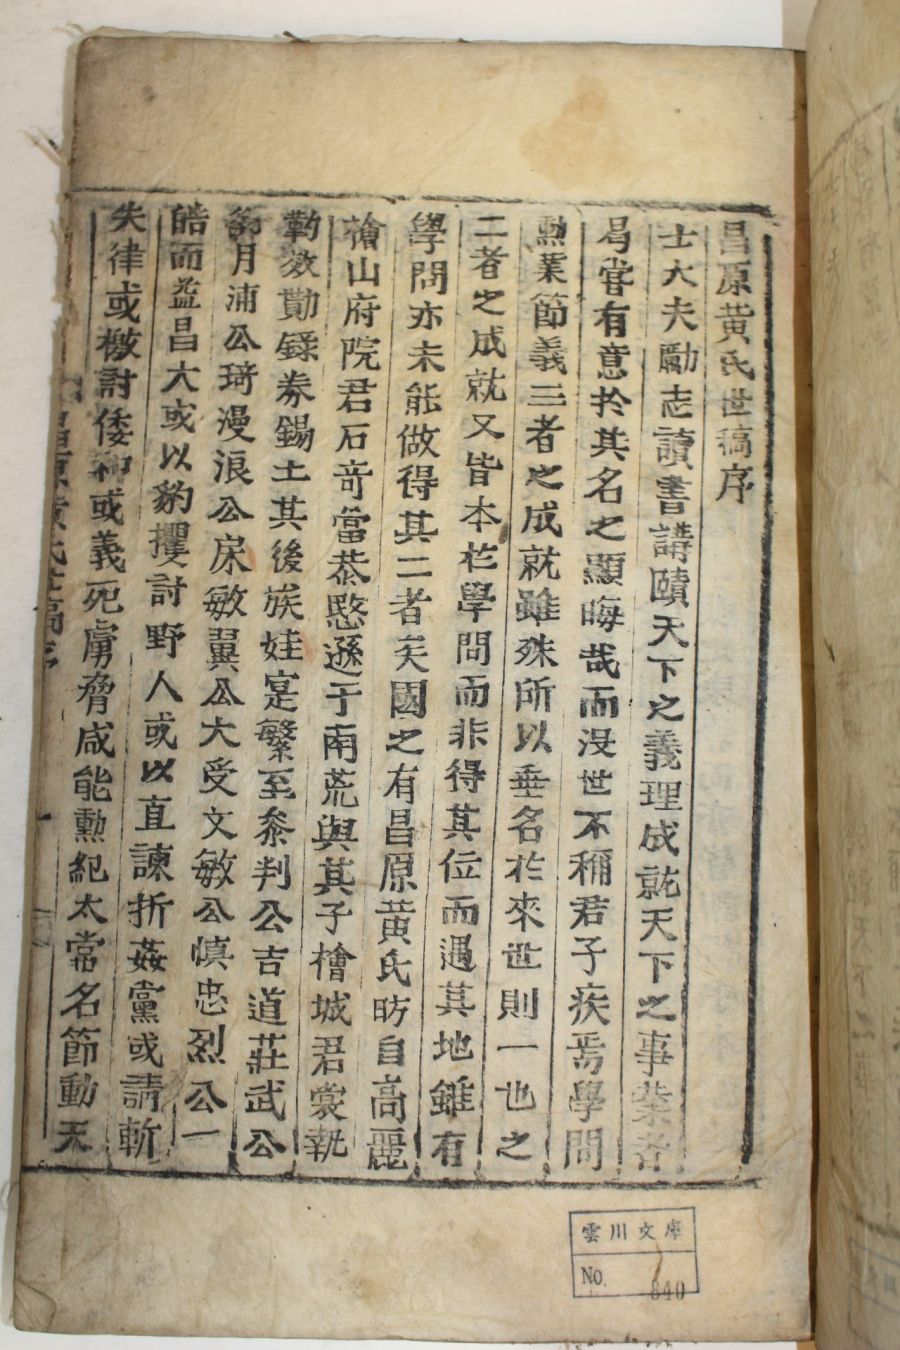 昌原黄氏世稿序
士大夫勵志讀書講賾天下之義理成就天下之事業者
曷嘗有意於其名之顯晦哉而没世不稱君子疾焉學問
勲業節義三者之成就雖殊所以垂名於來世則一也之
二者之成就又皆本於學問而非得其位而遇其地雖有
學問亦未能做得其二者矣國之有昌原黄氏昉自高麗
檜山府院君石奇當恭愍遜于南荒與其子檜城君裳執
勤效勩鐷券錫土其後族姓寔繁至叅判公吉道莊武公
衡月浦公琦漫浪公㦿敏翼公大受文敏公愼忠烈公一
皓而益昌大或以豹䩠討野人或以直諫折姦黨或請斬
失律或檄討倭柳或義死虜脅咸能勲紀太常名節動天
昌原黄氏世稿序
一
雲川文庫
No. 640